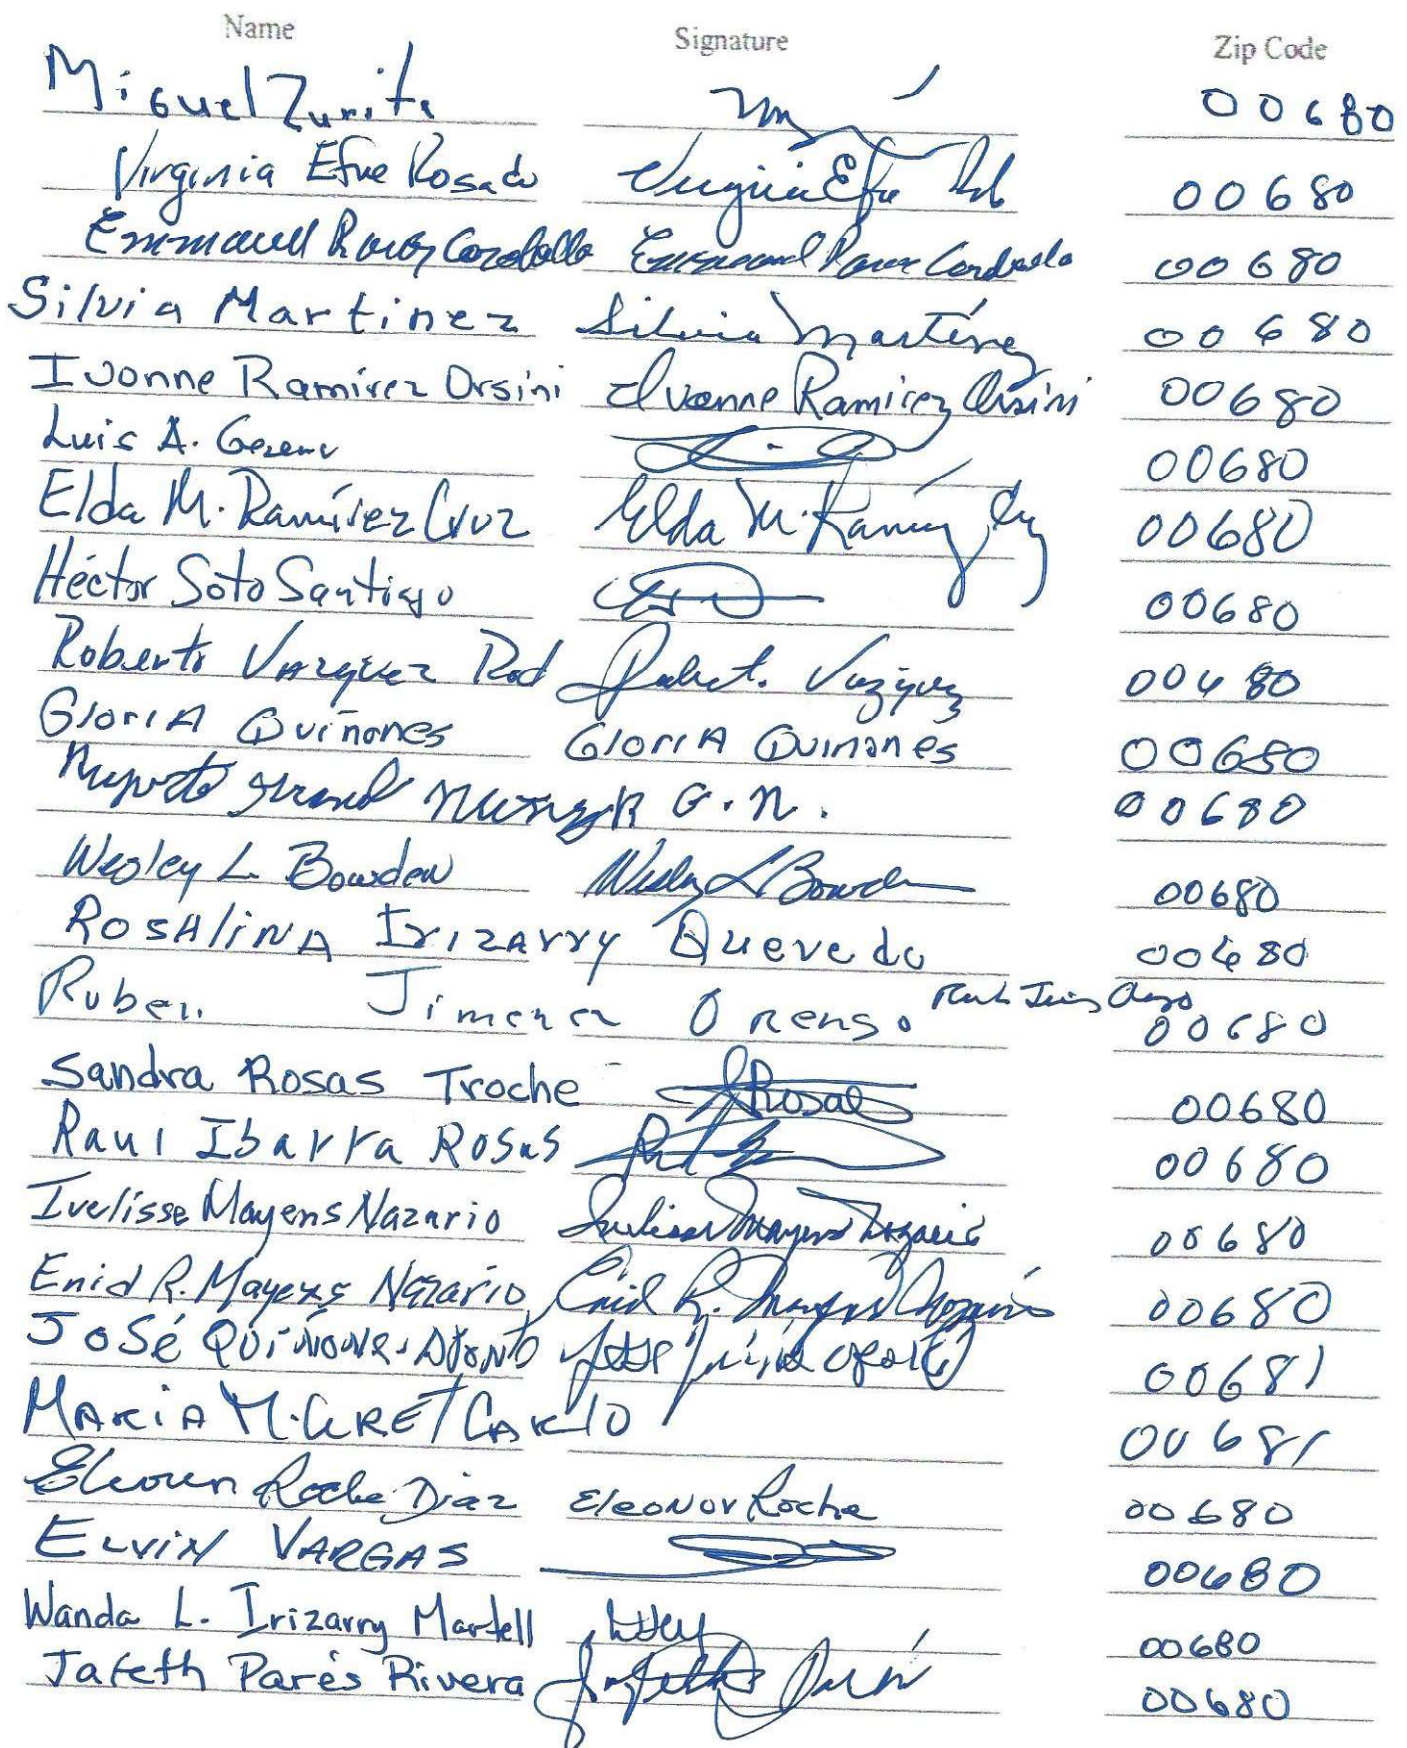 Name Signature Zip Code
Miguel Zurita 00680
Virginia Efre Rosado Virginia Efre 00680
Emmanuell Cordballa Emmanuel 00680
Silvia Martinez Silvia Martínez 00680
Ivonne Ramírez Orsini Ivonne Ramirez Orsini 00680
Luis A. 00680
Elda M. Ramírez Cruz Elda M. Ramírez 00680
Héctor Soto Santiago 00680
Roberto Vazquez Rod Robert. Vazquez 00680
GloriA Quiñones GloriA Quinones 00680
G.N. 00680
Wesley L. Bowden Wesley L Bowden 00680
ROSAliNA Irizarry Quevedo 00680
Ruben Jimenez Orengo 00680
Sandra Rosas Troche Rosas 00680
Raul Ibarra Rosas 00680
Ivelisse Mayens Nazario Ivelisse Mayens Nazario 00680
Enid R. Mayens Nazario Enid R. Mayens Nazario 00680
José 00681
MARiA M. 00681
Roche Diaz Eleonor Roche 00680
ELVIN VARGAS 00680
Wanda L. Irizarry Martell 00680
Jafeth Parés Rivera Jafeth Parés 00680